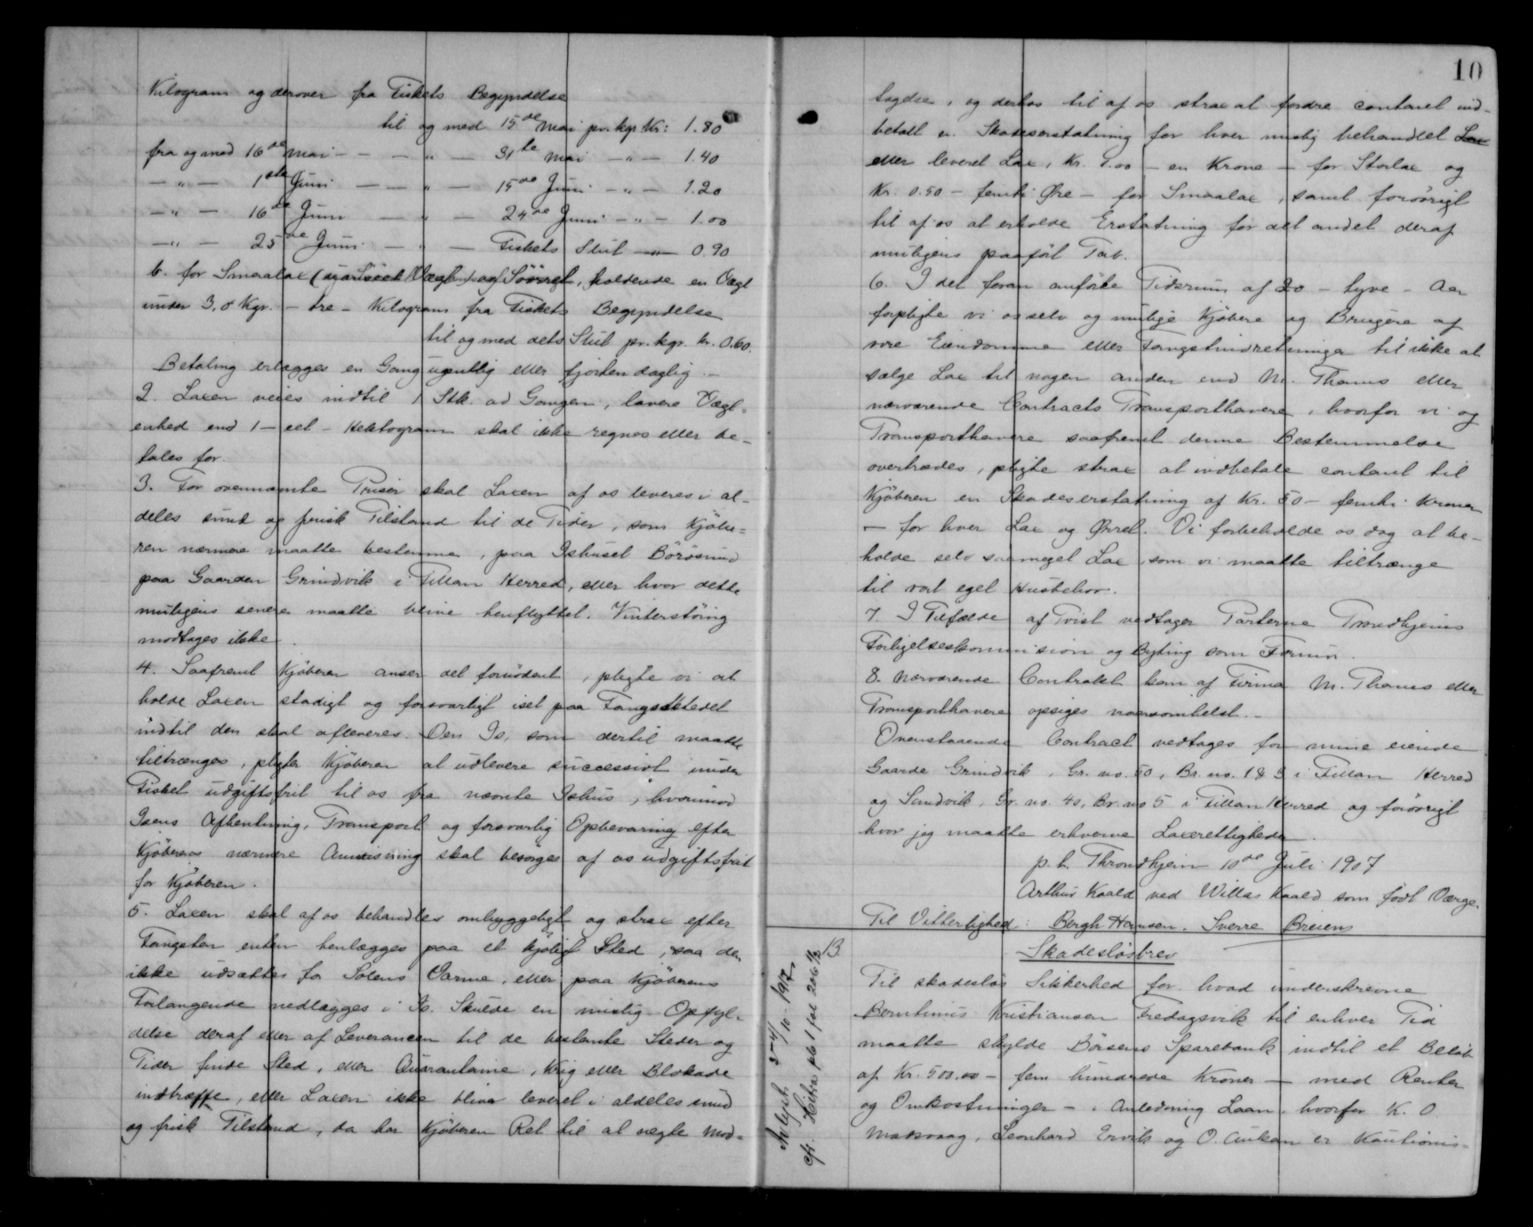 Kilogram og derover fra Fiskets Begyndelse
til og med 15de Mai pr. kgr. Kr: 1.80
fra og med 16de Mai - - - " - 31te Mai - " - 1.40
- " - 1ste Juni - - " - 15de Juni - " - 1.20
- " - 16de Juni - " - 24de Juni - " - 1.00
- " - 25de Juni - " - Fiskets Slut - " - 0.90
b. for Smaalax ( Vægt ) af Sörret, holdende en Vægt
under 3,0 Kgr. - tre - Kilogram fra Fiskets Begyndelse
til og med dets Slut pr. kgr. kr. 0.60.
Betaling erlægges en Gang ugentlig eller fjorten daglig. -
2. Laxen veies indtil 1 Stk. ad Gangen, lavere Vægt-
enhed end 1 - eet - Hektogram skal ikke regnes eller be-
tales for.
3. For ovennævnte Priser skal Laxen af os leveres i al-
deles sund og frisk Tilstand til de Tider, som Kjöbe-
ren nærmere maatte bestemme, paa Ishuset Börösund
paa Gaarden Grindvik i Fillan Herred, eller hvor dette
muligens senere maatte blive henflyttet. Vinterstöing
modtages ikke.
4. Saafremt Kjöberen anser det fornödent, pligte vi at
holde Laxen stadigt og forsvarligt iset paa Fangststedet
indtil den skal afleveres. Den Is, som dertil maatte
tiltrænges, pligter Kjöberen at udlevere successivt under
Fisket udgiftsfrit til os fra nævnte Ishus, hvorimod
Isens Afhentning, Transport og forsvarlig Opbevaring efter
Kjöberens nærmere Anvisning skal besörges af os udgiftsfrit
for Kjöberen.
5. Laxen skal af os behandles omhyggeligt og strax efter
Fangsten enten henlægges paa et kjöligt Sted, saa den
ikke udsættes for Solens Varme, eller paa Kjöberens
Forlangende nedlægges i Is. Skulde en mislig Opfyl-
delse deraf eller af Leverancen til de bestemte Steder og
Tider finde Sted, eller Quarantaine, Krig eller Blokade
indtræffe, eller Laxen ikke bliver leveret i aldeles sund
og frisk Tilstand, da har Kjöberen Ret til at nægte Mod-
10
tagelse, og derhos til af os strax at fordre contant ind-
betalt en Skadeserstatning for hver mislig behandlet Lax
eller leveret Lax, Kr. 1.00 - en Krone - for Storlax og
Kr. 0.50 - femti Øre - for Smaalax, samt forövrigt
til af os at erholde Erstatning for alt andet deraf
muligens paafölt Tab.
6. I det foran anförte Tidsrum af 20 - tyve - Aar
forpligte vi os selv og mulige Kjöbere og Brugere af
vore Eiendomme eller Fangstindretninger til ikke at
sælge Lax til nogen anden end M. Thams eller
nærværende Contracts Transporthavere, hvorfor vi og
Transporthavere saafremt denne Bestemmelse
overtrædes, pligte strax at indbetale contant til
Kjöberen en Skadeserstatning af Kr. 50 - femti Kroner
- for hver Lax og Ørret. Vi forbeholde os dog at be-
holde selv saa meget Lax, som vi maatte tiltrænge
til vort eget Husbehov.
7. I Tilfælde af Tvist vedtager Parterne Trondhjems
Forligelseskommission og Byting som Forum.
8. Nærværende Contrakt kan af Firma M. Thams eller
Transporthavere opsiges naarsomhelst. -
Ovenstaaende Contract vedtages for mine eiende
Gaarde Grindvik, Gr. no. 50, Br. no. 1 & 3 i Fillan Herred
og Sandvik, Gr. no. 40, Br. no 5 i Fillan Herred og forövrigt
hvor jeg maatte erhverve Laxerettigheder.
p. t. Throndhjem 10de Juli 1907
Arthur Kaald ved Willas Kaald som födt Værge.
Til Vitterlighed: Bergh Hansen. Sverre Breiens
13
Skadeslösbrev
Til skadeslös Sikkerhed for hvad underskrevne
Berntinus Kristiansen Fredagsvik til enhver Tid
maatte skylde Börsens Sparebank indtil et Belöb
af Kr. 500.00 - fem hundrede Kroner - med Renter
og Omkostninger - i Anledning Laan, hvorfor K. O.
Masvaag, Leonhard Ervik og O. Aukan er Kautionis-
Aflyst 3-4/10-1917
cfr. Hitra pb 1 fol 206